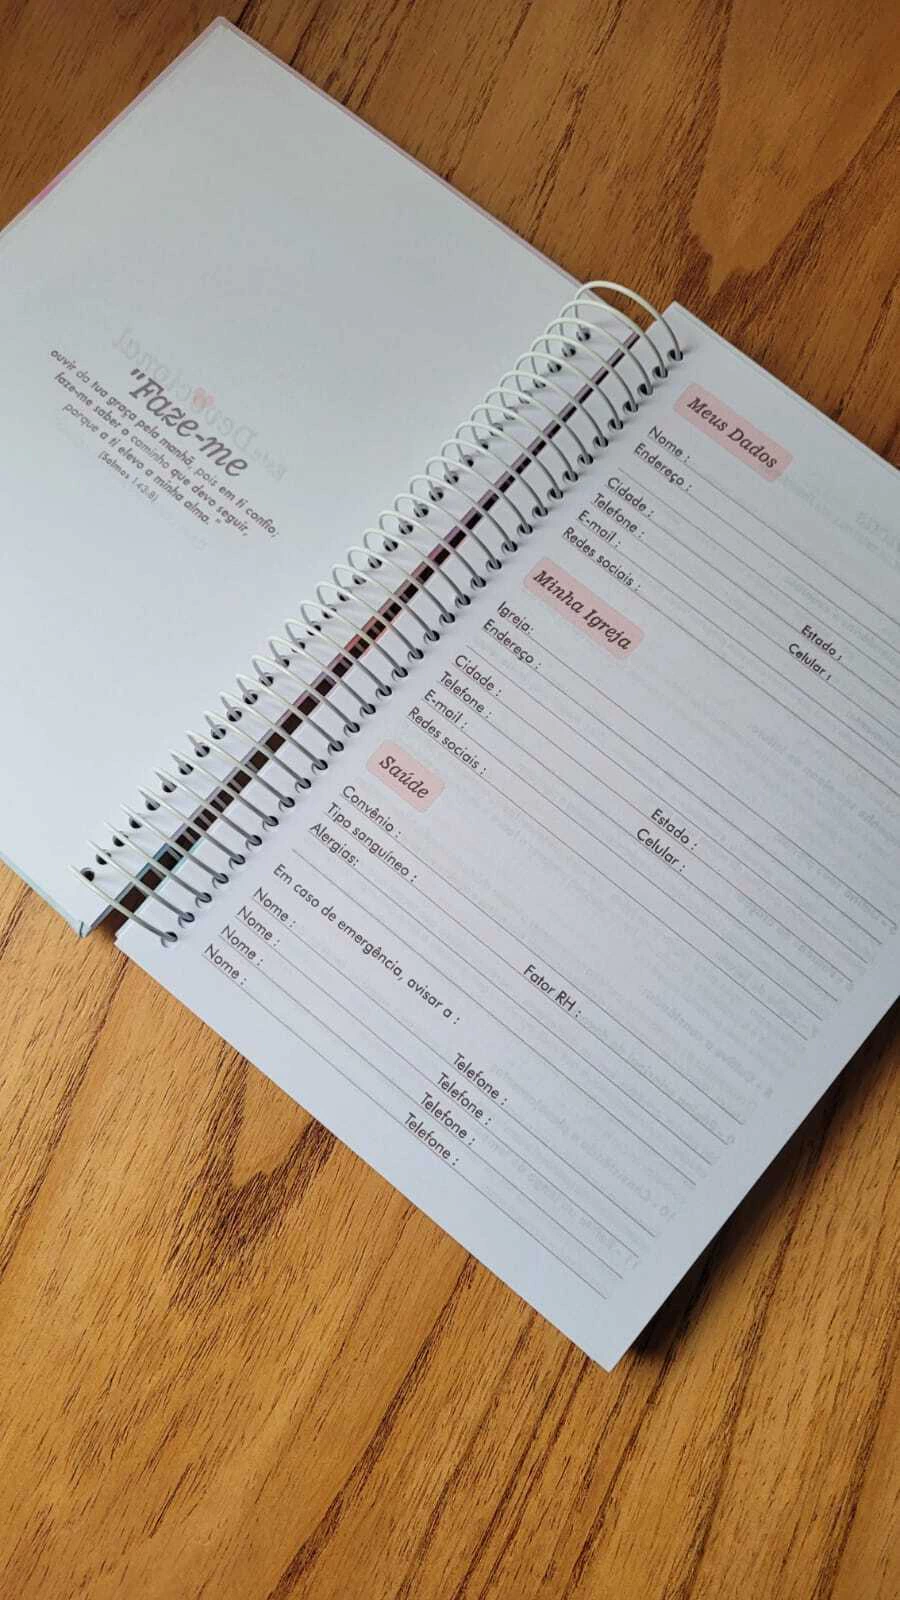 "Faze-me
ouvir da tua graça pela manhã, pois em ti confio;
faze-me saber o caminho que devo seguir,
porque a ti elevo a minha alma."
(Salmos 143:8)
Meus Dados
Nome :
Endereço :
Cidade : Estado :
Telefone : Celular :
E-mail :
Redes sociais :
Minha Igreja
Igreja:
Endereço :
Cidade : Estado :
Telefone : Celular :
E-mail :
Redes sociais :
Saúde
Convênio :
Tipo sanguíneo : Fator RH :
Alergias:
Em caso de emergência, avisar a :
Nome : Telefone :
Nome : Telefone :
Nome : Telefone :
Nome : Telefone :